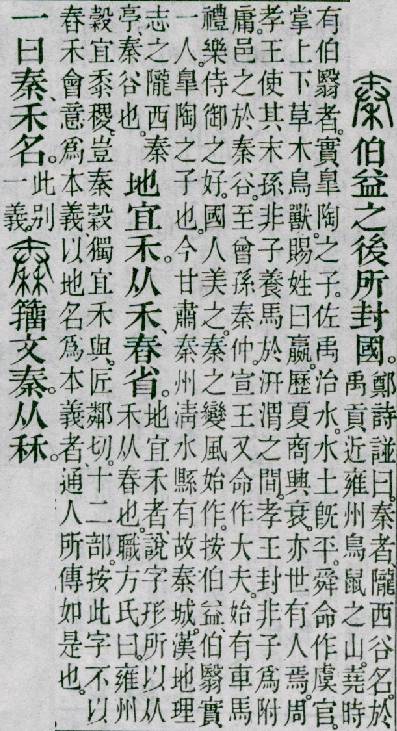 伯益之後所封國。
鄭詩譜曰。秦者、隴西谷名。於
禹貢近雍州鳥鼠之山。堯時
有伯翳者。實皐陶之子。佐禹治水。水土旣平。舜命作虞官。
掌上下草木鳥獸。賜姓曰嬴。歷夏商興衰。亦世有人焉。周
孝王使其末孫非子養馬於汧渭之間。孝王封非子爲附
庸。邑之於秦谷。至曾孫秦仲。宣王又命作大夫。始有車馬
禮樂侍御之好。國人美之。秦之變風始作。按伯益伯翳實
一人。皐陶之子也。今甘肅秦州淸水縣有故秦城。漢地理
志之隴西秦
亭秦谷也。
地宜禾。从禾舂省。
地宜禾者、說字形所以从
禾从舂也。職方氏曰。雍州
穀宜黍稷。豈秦穀獨宜禾與。匠鄰切。十二部。按此字不以
舂禾會意爲本義。以地名爲本義者。通人所傳如是也。
一曰秦、禾名。
此別
一義。
秦
籒文秦。从秝。